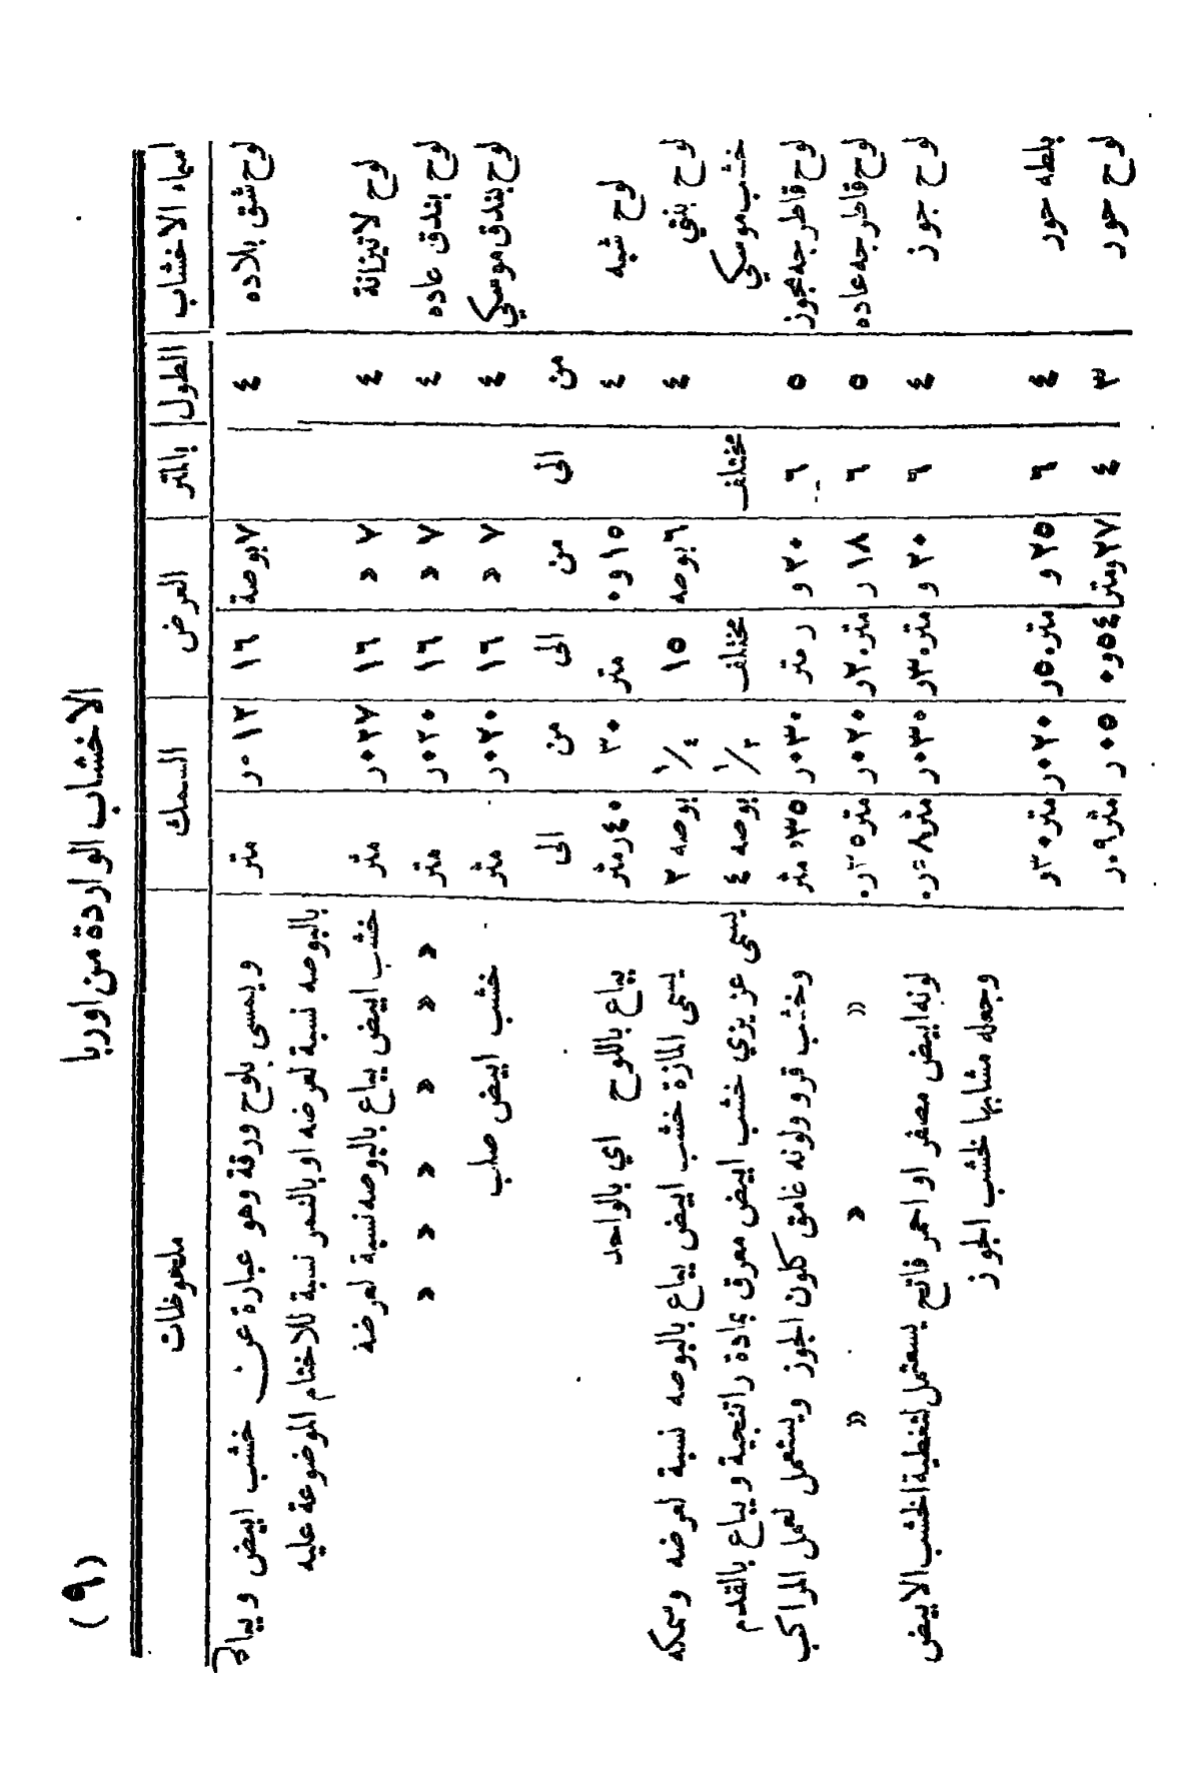 (٩)
الاخشاب الواردة من اوربا
اسماء الاخشاب | الطول بالمتر | العرض | السمك | ملحوظات
لوح شق بلاده ٤ ٧ بوصة ١٦ متر ويسمى بلوح ورقة وهو عبارة عن خشب ابيض ويباع
بالبوصه نسبة لعرضه او بالنمر نسبة للاختام الموضوعة عليه
لوح لاتيزانة ٤ ٧ » ١٦ ٠٢٧ر متر خشب ابيض يباع بالبوصه نسبة لعرضة
لوح بندق عاده ٤ ٧ » ١٦ ٠٢٠ر متر » » » » » »
لوح بندق موسكي ٤ ٧ » ١٦ ٠٢٠ر متر خشب ابيض صلب
من الى من الى من الى
لوح شبه ٤ ١٥و٠ متر ٣٠ ٠٤٠ر متر يباع باللوح اي بالواحد
لوح بنقي ٤ ٦ بوصه ١٥ ١/٤ بوصه ٢ يسمى المازة خشب ابيض يباع بالبوصه نسبة لعرضه وسمكه
خشب موسكي مختلف مختلف ١/٢ بوصه ٤ يسمى عزيزي خشب ابيض معرق بمادة راتنجية ويباع بالقدم
لوح قاطرجه مجوز ٥ ٦ ٢٠ و ر متر ٠٣٠ر ٠٣٥ متر وخشب قرو ولونه غامق كلون الجوز ويستعمل لعمل المراكب
لوح قاطرجه عاده ٥ ٦ ١٨ ر متر ٢٠ر ٠٢٠ر متر » » »
لوح جوز ٤ ٦ ٢٠ و متر ٣٠ر ٠٣٠ر متر لونه ابيض مصفر او احمر فاتح يستعمل لتغطية الخشب الابيض
وجعله مشابها لخشب الجوز
بلطه حور ٤ ٦ ٢٥ و متر ٥٠ر ٠٢٠ر متر ٣٠ر
لوح حور ٣ ٤ ٢٧و متر ٥٤و٠ ٠٥ر متر ٠٩ر